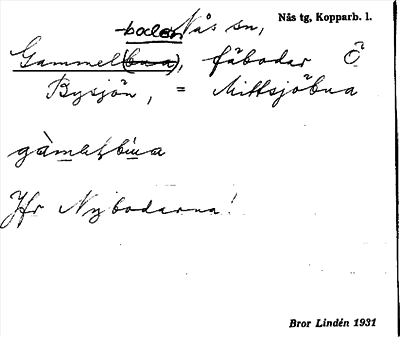 Nås sn,
Nås tg, Kopparb. l.
-boden
Gammel(bua), fäbodar Ö
Bysjön, = Mittsjöbua
Jfr Nybodarna!
Bror Lindén 1931